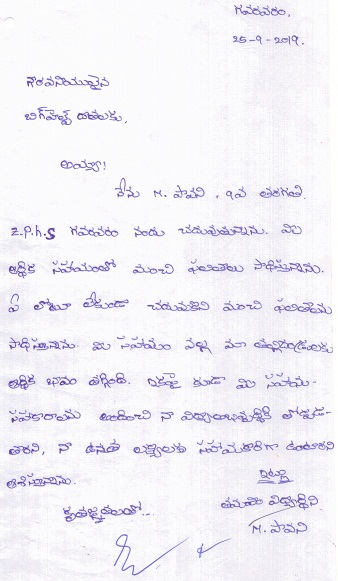 గవరవరం,
25-9-2019.
గౌరవనీయులైన
బిగ్‌హెల్ప్ దాతలకు,
అయ్యా!
నేను M. పావని, 9వ తరగతి.
Z.P.H.S గవరవరం నందు చదువుతున్నాను. మీ
ఆర్థిక సహాయంతో మంచి ఫలితాలు సాధిస్తున్నాను.
ఏ లోటూ లేకుండా చదువుకుని మంచి ఫలితాలను
సాధిస్తున్నాను. మీ సహాయం వల్ల మా తల్లిదండ్రులకు
ఆర్థిక భారం తగ్గింది. ఇకపై కూడా మీ సహాయ-
సహకారాలను అందించి నా విద్యాభివృద్ధికి తోడ్పడ-
తారని, నా ఉన్నత లక్ష్యాలకు సహాయకారిగా ఉంటారని
ఆశిస్తున్నాను.
కృతజ్ఞతలతో...
ఇట్లు
తమ విద్యార్థిని
M. పావని